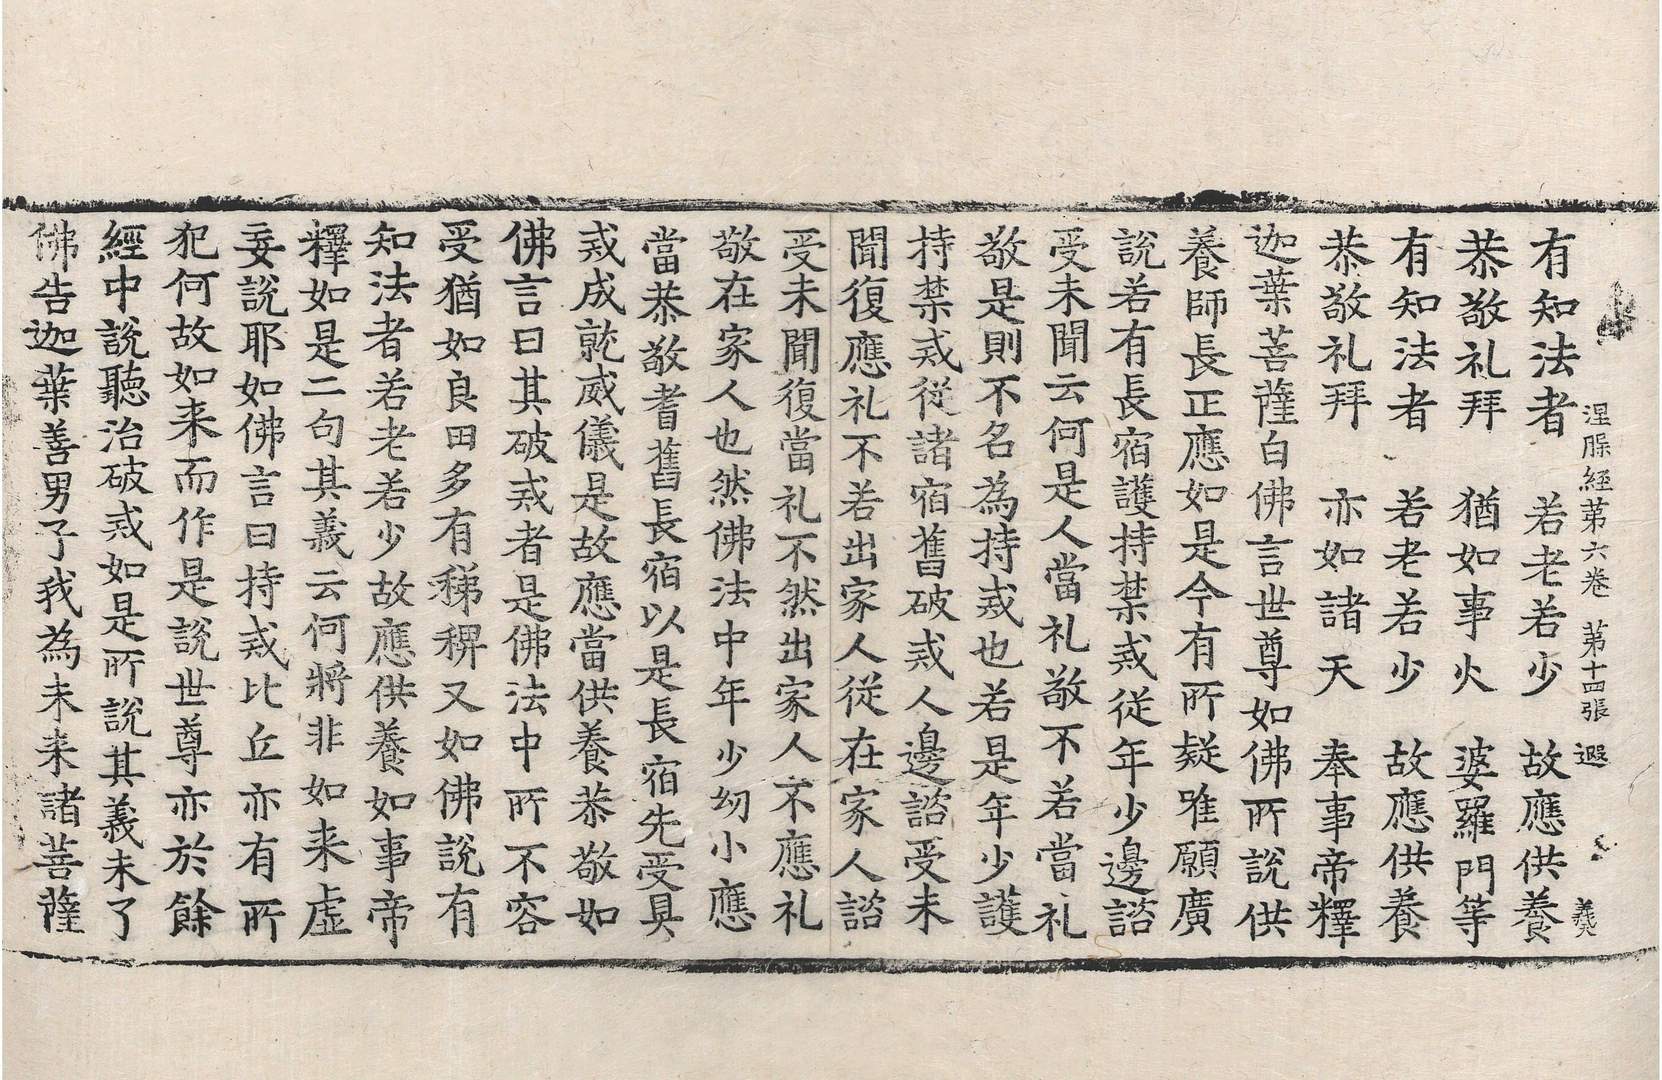 涅槃經第六卷 第十四張 遐 義
有知法者 若老若少 故應供養
恭敬礼拜 猶如事火 婆羅門等
有知法者 若老若少 故應供養
恭敬礼拜 亦如諸天 奉事帝釋
迦葉菩薩白佛言世尊如佛所說供
養師長正應如是今有所疑唯願廣
說若有長宿護持禁戒従年少邊諮
受未聞云何是人當礼敬不若當礼
敬是則不名為持戒也若是年少護
持禁戒従諸宿舊破戒人邊諮受未
聞復應礼不若出家人従在家人諮
受未聞復當礼不然出家人不應礼
敬在家人也然佛法中年少幼小應
當恭敬耆舊長宿以是長宿先受具
戒成就威儀是故應當供養恭敬如
佛言曰其破戒者是佛法中所不容
受猶如良田多有稊稗又如佛說有
知法者若老若少故應供養如事帝
釋如是二句其義云何將非如来虛
妄說耶如佛言曰持戒比丘亦有所
犯何故如来而作是說世尊亦於餘
經中說聽治破戒如是所說其義未了
佛告迦葉善男子我為未来諸菩薩